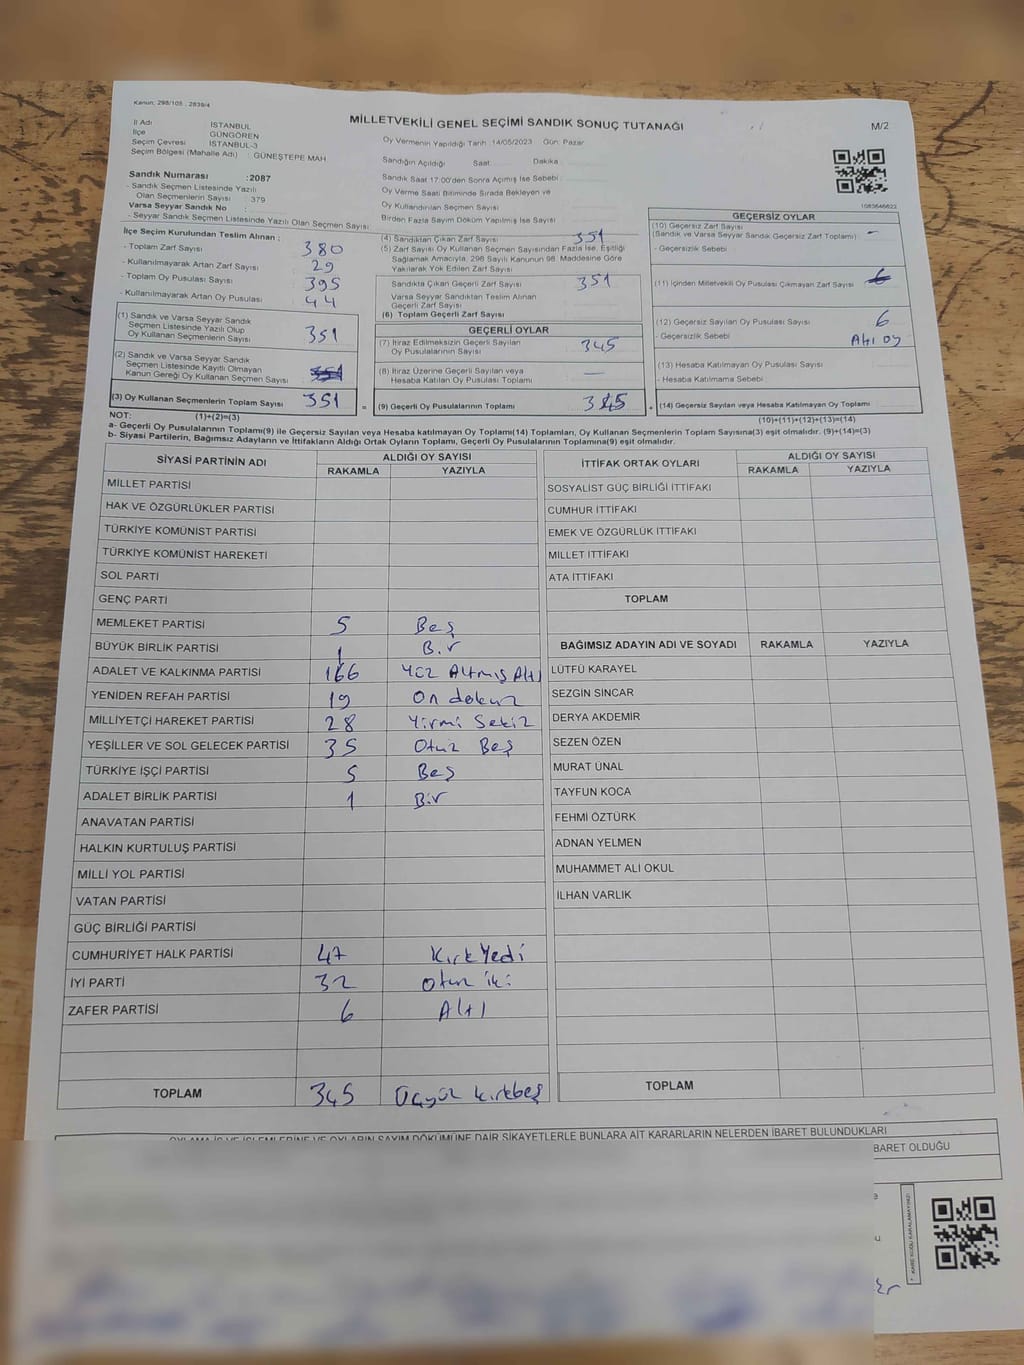 Kanun: 298/105 , 2839/4
MİLLETVEKİLİ GENEL SEÇİMİ SANDIK SONUÇ TUTANAĞI
M/2
İl Adı İSTANBUL
İlçe GÜNGÖREN
Seçim Çevresi İSTANBUL-3
Seçim Bölgesi (Mahalle Adı) : GÜNEŞTEPE MAH
Sandık Numarası :2087
- Sandık Seçmen Listesinde Yazılı
Olan Seçmenlerin Sayısı : 379
Varsa Seyyar Sandık No :
- Seyyar Sandık Seçmen Listesinde Yazılı Olan Seçmen Sayısı
Oy Vermenin Yapıldığı Tarih :14/05/2023 Gün: Pazar
Sandığın Açıldığı Saat: Dakika:
Sandık Saat 17:00'den Sonra Açımış İse Sebebi
Oy Verme Saati Bitiminde Sırada Bekleyen ve
Oy Kullandırılan Seçmen Sayısı
Birden Fazla Sayım Döküm Yapılmış İse Sayısı
1083646622
İlçe Seçim Kurulundan Teslim Alınan :
- Toplam Zarf Sayısı 380
- Kullanılmayarak Artan Zarf Sayısı : 29
- Toplam Oy Pusulası Sayısı : 395
- Kullanılmayarak Artan Oy Pusulası : 44
(1) Sandık ve Varsa Seyyar Sandık
Seçmen Listesinde Yazılı Olup
Oy Kullanan Seçmenlerin Sayısı : 351
(2) Sandık ve Varsa Seyyar Sandık
Seçmen Listesinde Kayıtlı Olmayan
Kanun Gereği Oy Kullanan Seçmen Sayısı :
(3) Oy Kullanan Seçmenlerin Toplam Sayısı : 351
(4) Sandıktan Çıkan Zarf Sayısı 351
(5) Zarf Sayısı Oy Kullanan Seçmen Sayısından Fazla İse, Eşitliği
Sağlamak Amacıyla, 298 Sayılı Kanunun 98. Maddesine Göre
Yakılarak Yok Edilen Zarf Sayısı
Sandıkta Çıkan Geçerli Zarf Sayısı 351
Varsa Seyyar Sandıktan Teslim Alınan
Geçerli Zarf Sayısı
(6) Toplam Geçerli Zarf Sayısı
GEÇERLİ OYLAR
(7) İtiraz Edilmeksizin Geçerli Sayılan
Oy Pusulalarının Sayısı : 345
(8) İtiraz Üzerine Geçerli Sayılan veya
Hesaba Katılan Oy Pusulası Toplamı : —
= (9) Geçerli Oy Pusulalarının Toplamı : 345
GEÇERSİZ OYLAR
(10) Geçersiz Zarf Sayısı
(Sandık ve Varsa Seyyar Sandık Geçersiz Zarf Toplamı) : -
- Geçersizlik Sebebi
(11) İçinden Milletvekili Oy Pusulası Çıkmayan Zarf Sayısı :
(12) Geçersiz Sayılan Oy Pusulası Sayısı : 6
- Geçersizlik Sebebi : Altı oy
(13) Hesaba Katılmayan Oy Pusulası Sayısı
- Hesaba Katılmama Sebebi
+ (14) Geçersiz Sayılan veya Hesaba Katılmayan Oy Toplamı
NOT: (1)+(2)=(3)
(10)+(11)+(12)+(13)=(14)
a- Geçerli Oy Pusulalarının Toplamı(9) ile Geçersiz Sayılan veya Hesaba katılmayan Oy Toplamı(14) Toplamları, Oy Kullanan Seçmenlerin Toplam Sayısına(3) eşit olmalıdır. (9)+(14)=(3)
b- Siyasi Partilerin, Bağımsız Adayların ve İttifakların Aldığı Ortak Oyların Toplamı, Geçerli Oy Pusulalarının Toplamına(9) eşit olmalıdır.
SİYASİ PARTİNİN ADI ALDIĞI OY SAYISI
RAKAMLA YAZIYLA
MİLLET PARTİSİ
HAK VE ÖZGÜRLÜKLER PARTİSİ
TÜRKİYE KOMÜNİST PARTİSİ
TÜRKİYE KOMÜNİST HAREKETİ
SOL PARTİ
GENÇ PARTİ
MEMLEKET PARTİSİ 5 Beş
BÜYÜK BİRLİK PARTİSİ 1 Bir
ADALET VE KALKINMA PARTİSİ 166 Yüz Altmış Altı
YENİDEN REFAH PARTİSİ 19 On dokuz
MİLLİYETÇİ HAREKET PARTİSİ 28 Yirmi Sekiz
YEŞİLLER VE SOL GELECEK PARTİSİ 35 Otuz Beş
TÜRKİYE İŞÇİ PARTİSİ 5 Beş
ADALET BİRLİK PARTİSİ 1 Bir
ANAVATAN PARTİSİ
HALKIN KURTULUŞ PARTİSİ
MİLLİ YOL PARTİSİ
VATAN PARTİSİ
GÜÇ BİRLİĞİ PARTİSİ
CUMHURİYET HALK PARTİSİ 47 Kırk Yedi
İYİ PARTİ 32 Otuz iki
ZAFER PARTİSİ 6 Altı
TOPLAM 345 Üçyüz kırkbeş
İTTİFAK ORTAK OYLARI ALDIĞI OY SAYISI
RAKAMLA YAZIYLA
SOSYALİST GÜÇ BİRLİĞİ İTTİFAKI
CUMHUR İTTİFAKI
EMEK VE ÖZGÜRLÜK İTTİFAKI
MİLLET İTTİFAKI
ATA İTTİFAKI
TOPLAM
BAĞIMSIZ ADAYIN ADI VE SOYADI RAKAMLA YAZIYLA
LÜTFÜ KARAYEL
SEZGİN SİNCAR
DERYA AKDEMİR
SEZEN ÖZEN
MURAT ÜNAL
TAYFUN KOCA
FEHMİ ÖZTÜRK
ADNAN YELMEN
MUHAMMET ALİ OKUL
İLHAN VARLIK
TOPLAM
OYLAMA İŞ VE İŞLEMLERİNE VE OYLARIN SAYIM DÖKÜMÜNE DAİR ŞİKAYETLERLE BUNLARA AİT KARARLARIN NELERDEN İBARET BULUNDUKLARI
BARET OLDUĞU
* KARE KODU KARALAMAYINIZ!